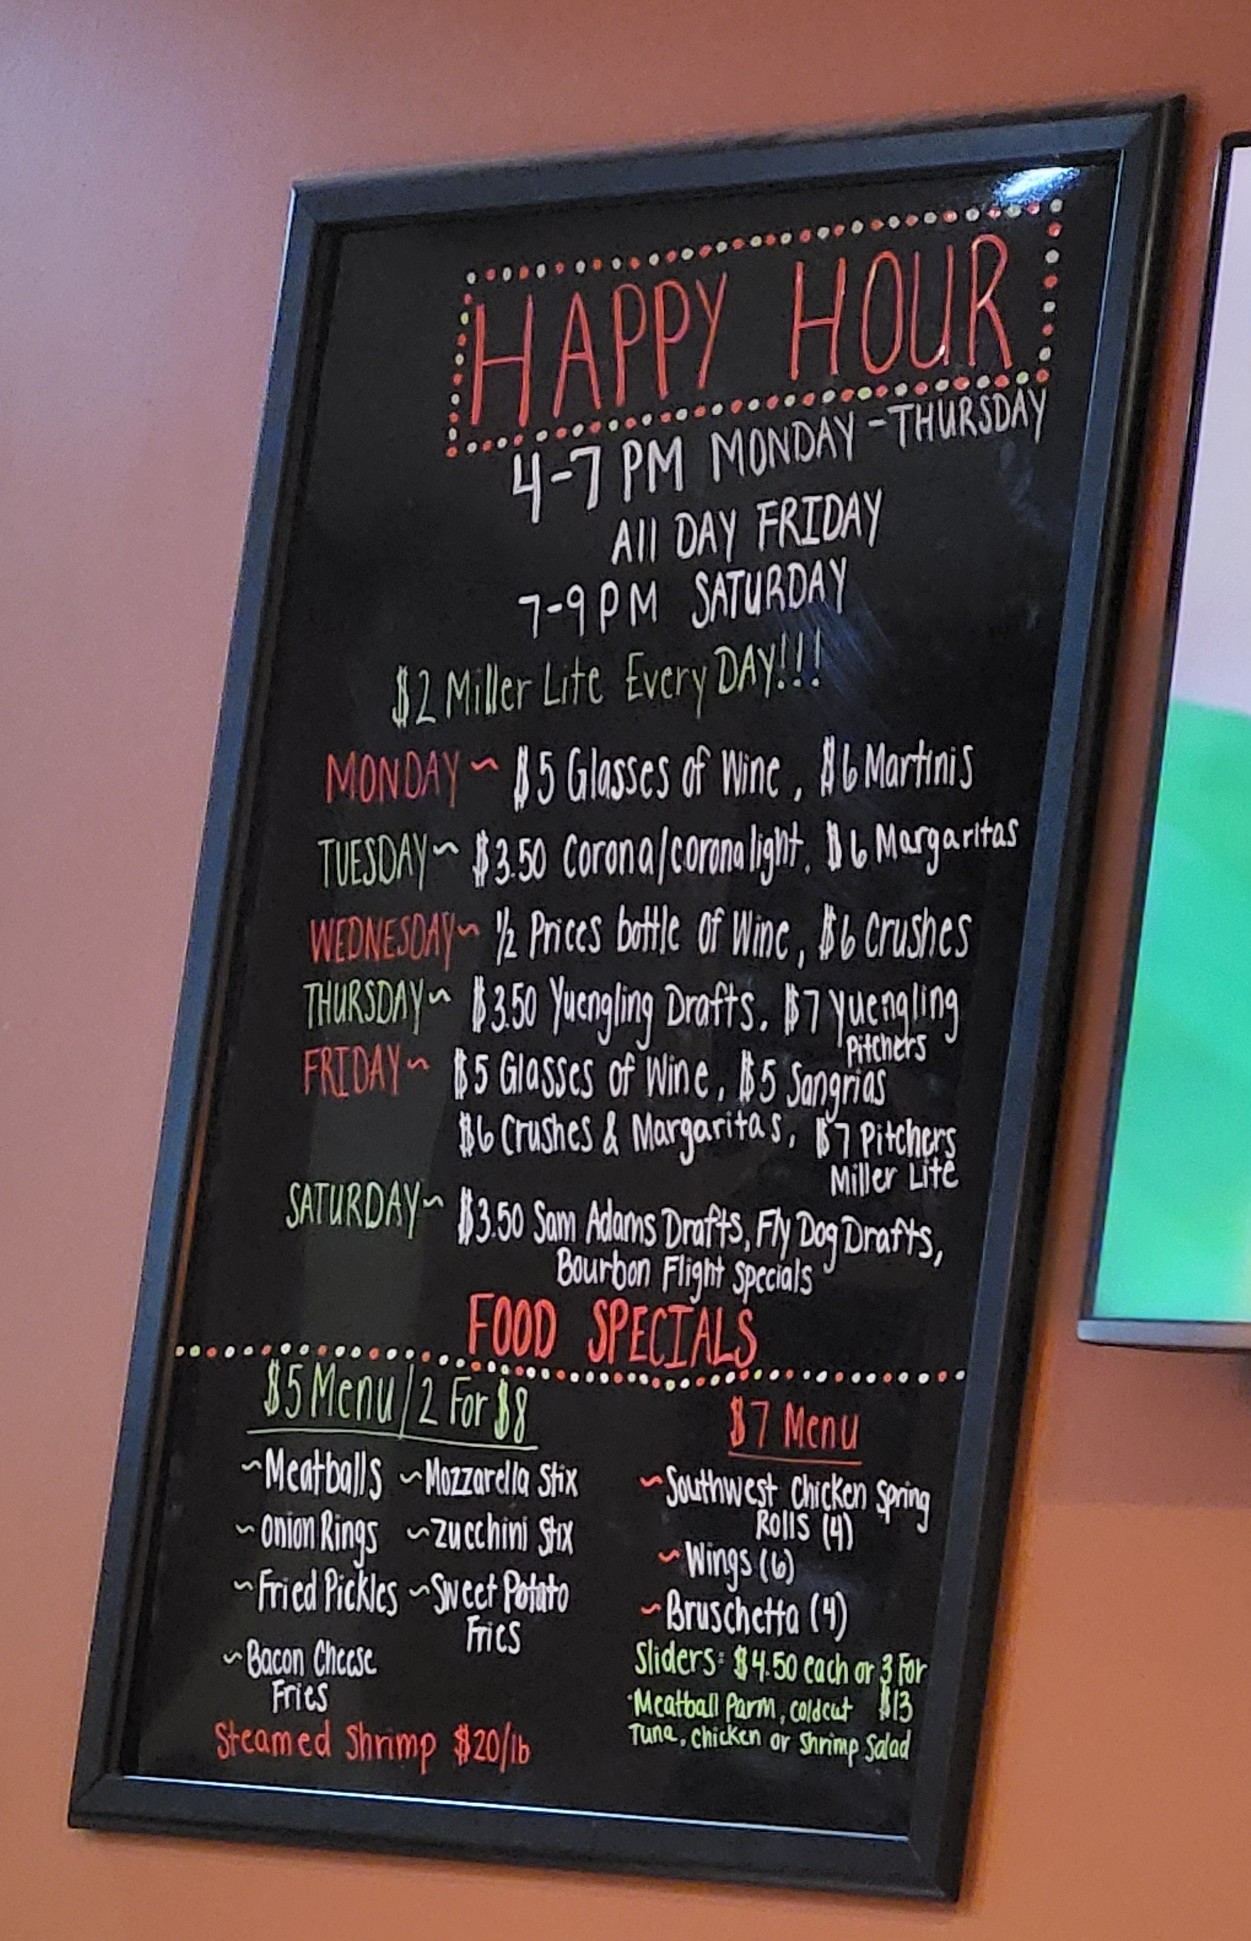 HAPPY HOUR
4-7 PM MONDAY-THURSDAY
All DAY FRIDAY
7-9 PM SATURDAY
$2 Miller Lite Every DAY!!!
MONDAY~ $5 Glasses of Wine, $6 Martinis
TUESDAY~ $3.50 Corona/corona light, $6 Margaritas
WEDNESDAY~ ½ Prices bottle of Wine, $6 Crushes
THURSDAY~ $3.50 Yuengling Drafts, $7 Yuengling
Pitchers
FRIDAY~ $5 Glasses of Wine, $5 Sangrias
$6 Crushes & Margaritas, $7 Pitchers
Miller Lite
SATURDAY~ $3.50 Sam Adams Drafts, Fly Dog Drafts,
Bourbon Flight Specials
FOOD SPECIALS
$5 Menu/2 For $8
~Meatballs ~Mozzarella Stix
~Onion Rings ~Zucchini Stix
~Fried Pickles ~Sweet Potato
Fries
~Bacon Cheese
Fries
Steamed Shrimp $20/lb
$7 Menu
~Southwest Chicken Spring
Rolls (4)
~Wings (6)
~Bruschetta (4)
Sliders: $4.50 each or 3 For
·Meatball Parm, coldcut $13
Tuna, chicken or Shrimp Salad